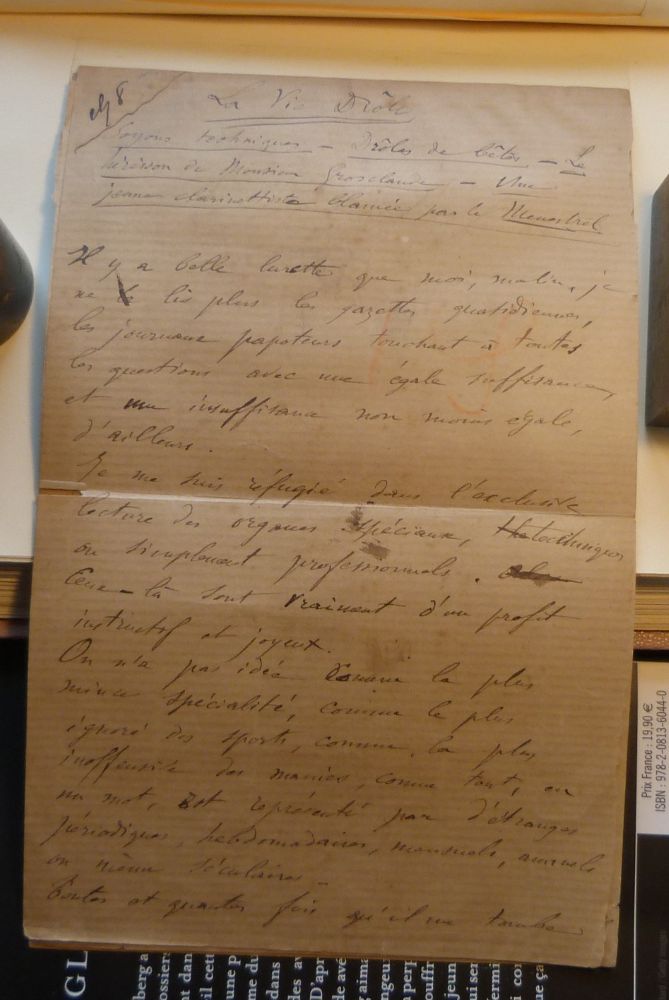 La Vie Drôle
Soyons techniques — Drôles de bêtes — Le
hérisson de Monsieur Grosclaude — Une
jeune clarinettiste blamée par le Menestrel
Il y a belle lurette que moi, malin, je
ne lis plus les gazettes quotidiennes,
les journaux papoteurs touchant à toutes
les questions avec une égale suffisance,
et une insuffisance non moins égale,
d'ailleurs.
Je me suis réfugié dans l'exclusive
lecture des organes spéciaux, techniques
ou simplement professionnels.
Ceux-là sont vraiment d'un profit
instructif et joyeux.
On n'a pas idée comme la plus
mince spécialité, comme le plus
ignoré des sports, comme la plus
inoffensive des manies, comme tout, en
un mot, est représenté par d'étranges
périodiques, hebdomadaires, mensuels, annuels
ou même séculaires.
Toutes et quantes fois qu'il me tombe
Prix France : 19,90 €
ISBN : 978-2-0813-6044-0